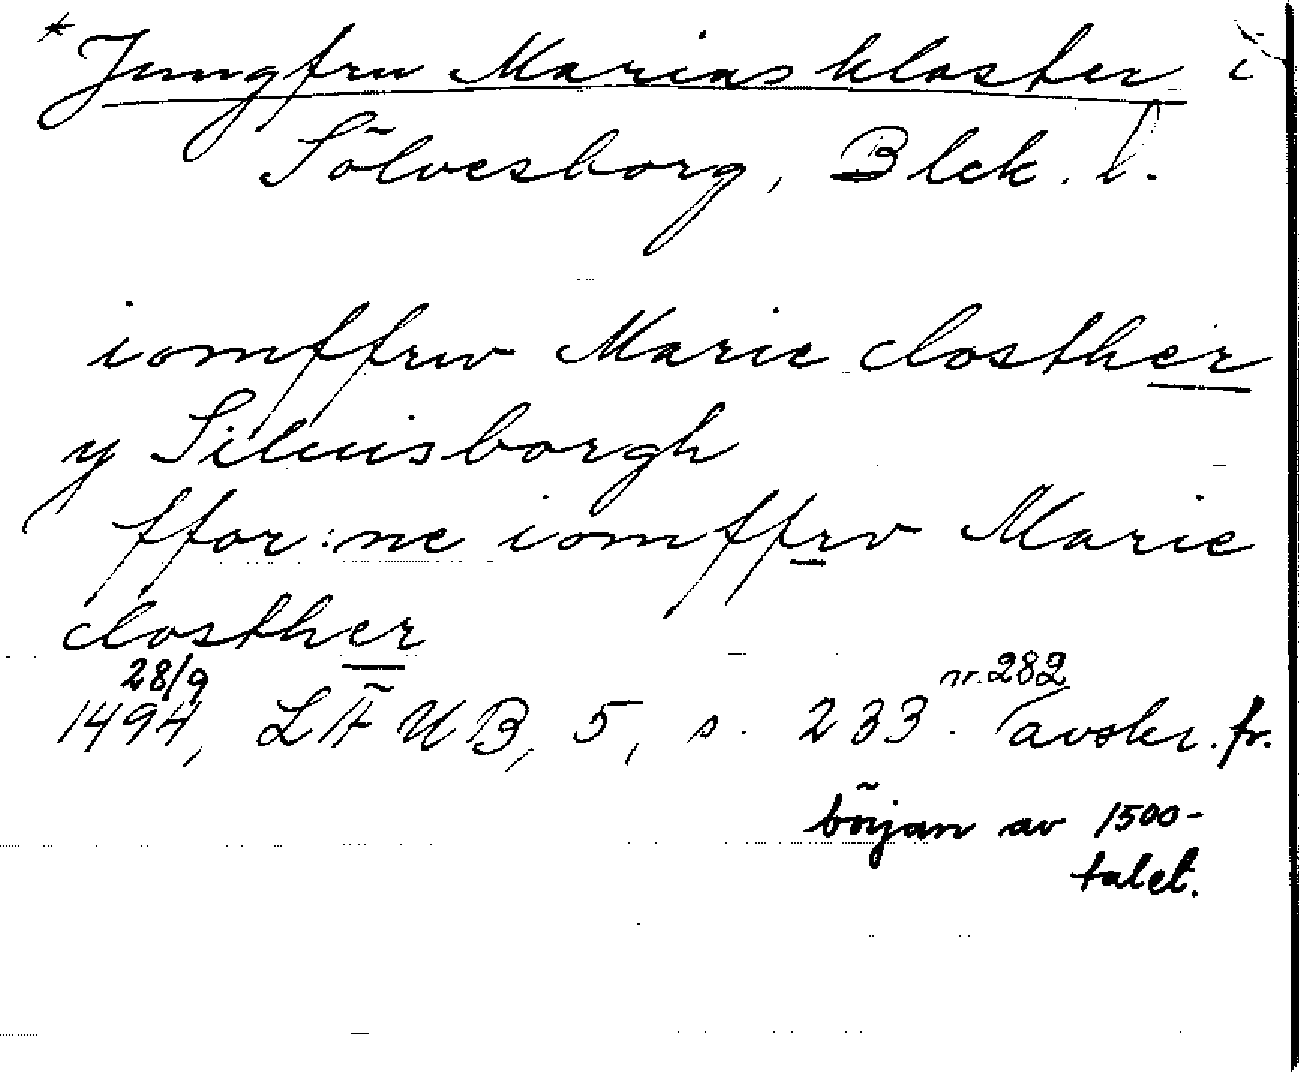 * Jungfru Marias kloster i
Sölvesborg, Blek. l.
iomffrw Marie closther
y Siluisborgh
ffor:ne iomffrv Marie
closther
28/9 1494, LÄUB, 5, s. 233. nr. 282 (avskr. fr.
början av 1500-
talet.